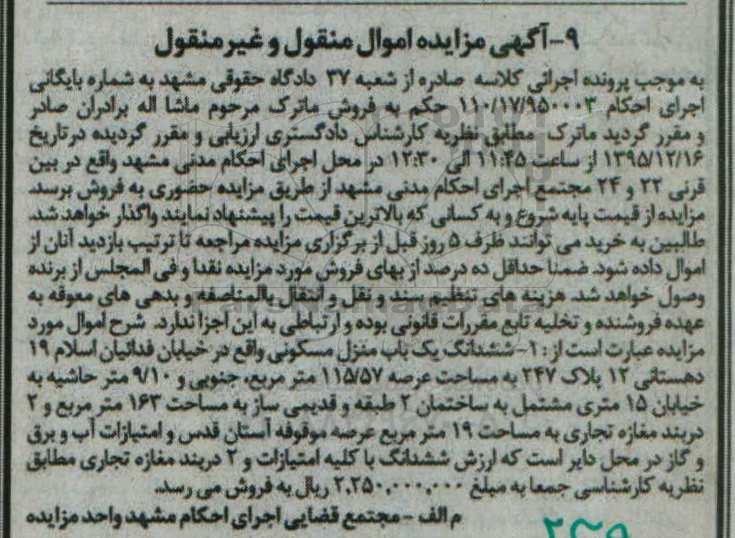 ۹-آگهی مزایده اموال منقول و غیر منقول
به موجب پرونده اجرائی کلاسه صادره از شعبه ۳۷ دادگاه حقوقی مشهد به شماره بایگانی
اجرای احکام ۱۱۰/۱۷/۹۵۰۰۰۳ حکم به فروش ماترک مرحوم ماشا اله برادران صادر
و مقرر گردید ماترک مطابق نظریه کارشناس دادگستری ارزیابی و مقرر گردیده در تاریخ
۱۳۹۵/۱۲/۱۶ از ساعت ۱۱:۴۵ الی ۱۲:۳۰ در محل اجرای احکام مدنی مشهد واقع در بین
قرنی ۲۲ و ۲۴ مجتمع اجرای احکام مدنی مشهد از طریق مزایده حضوری به فروش برسد.
مزایده از قیمت پایه شروع و به کسانی که بالاترین قیمت را پیشنهاد نمایند واگذار خواهد شد.
طالبین به خرید می توانند ظرف ۵ روز قبل از برگزاری مزایده مراجعه تا ترتیب بازدید آنان از
اموال داده شود. ضمنا حداقل ده درصد از بهای فروش مورد مزایده نقدا و فی المجلس از برنده
وصول خواهد شد. هزینه های تنظیم سند و نقل و انتقال بالمناصفه و بدهی های معوقه به
عهده فروشنده و تخلیه تابع مقررات قانونی بوده و ارتباطی به این اجرا ندارد. شرح اموال مورد
مزایده عبارت است از: ۱-ششدانگ یک باب منزل مسکونی واقع در خیابان فدائیان اسلام ۱۹
دهستانی ۱۲ پلاک ۲۴۷ به مساحت عرصه ۱۱۵/۵۷ متر مربع، جنوبی و ۹/۱۰ متر حاشیه به
خیابان ۱۵ متری مشتمل به ساختمان ۲ طبقه و قدیمی ساز به مساحت ۱۶۳ متر مربع و ۲
دربند مغازه تجاری به مساحت ۱۹ متر مربع عرصه موقوفه آستان قدس و امتیازات آب و برق
و گاز در محل دایر است که ارزش ششدانگ با کلیه امتیازات و ۲ دربند مغازه تجاری مطابق
نظریه کارشناسی جمعا به مبلغ ۲،۲۵۰،۰۰۰،۰۰۰ ریال به فروش می رسد.
م الف - مجتمع قضایی اجرای احکام مشهد واحد مزایده